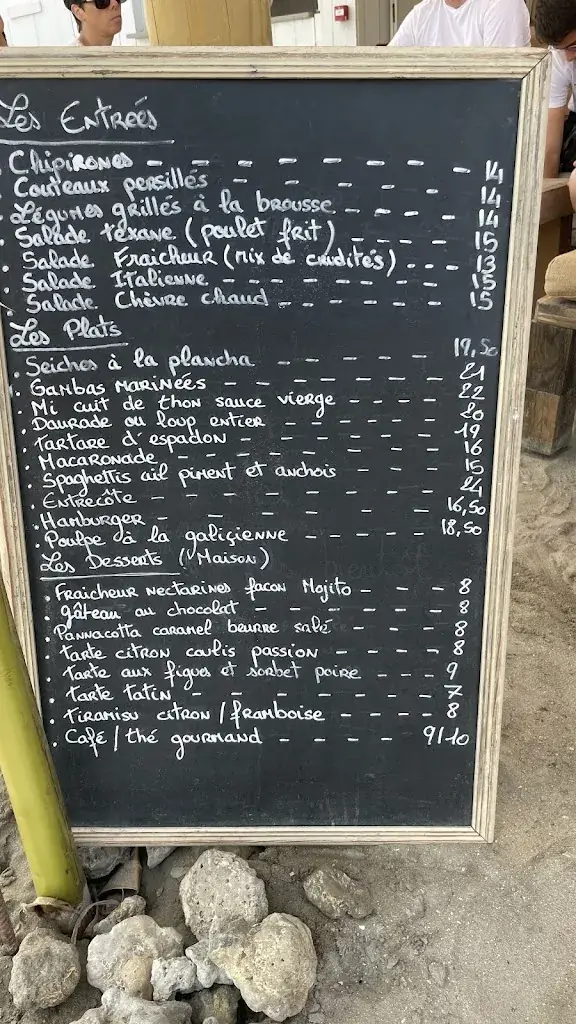 Les Entrées
• Chipirones - - - - - - - - 14
• Couteaux persillés - - - - - - 14
• Légumes grillés à la brousse - - - - 14
• Salade texane (poulet frit) - - - - 15
• Salade Fraicheur (mix de crudités) - - - 13
• Salade Italienne - - - - - - 15
• Salade Chèvre chaud - - - - - 15
Les Plats
• Seiches à la plancha - - - - - 19,50
• Gambas marinées - - - - - - - 21
• Mi cuit de thon sauce vierge - - - - 22
• Daurade ou loup entier - - - - - 20
• Tartare d'espadon - - - - - - 19
• Macaronade - - - - - - - 16
• Spaghettis ail piment et anchois - - - 15
• Entrecôte - - - - - - - - 24
• Hamburger - - - - - - - 16,50
• Poulpe à la galiçienne - - - - - 18,50
Les Desserts (Maison)
• Fraicheur nectarines facon Mojito - - - 8
• gâteau au chocolat - - - - - - 8
• Pannacotta caramel beurre salé - - - - 8
• tarte citron coulis passion - - - - 8
• tarte aux figues et sorbet poire - - - 9
• tarte tatin - - - - - - - - 7
• tiramisu citron / framboise - - - - 8
• Café / thé gourmand - - - - 9/10